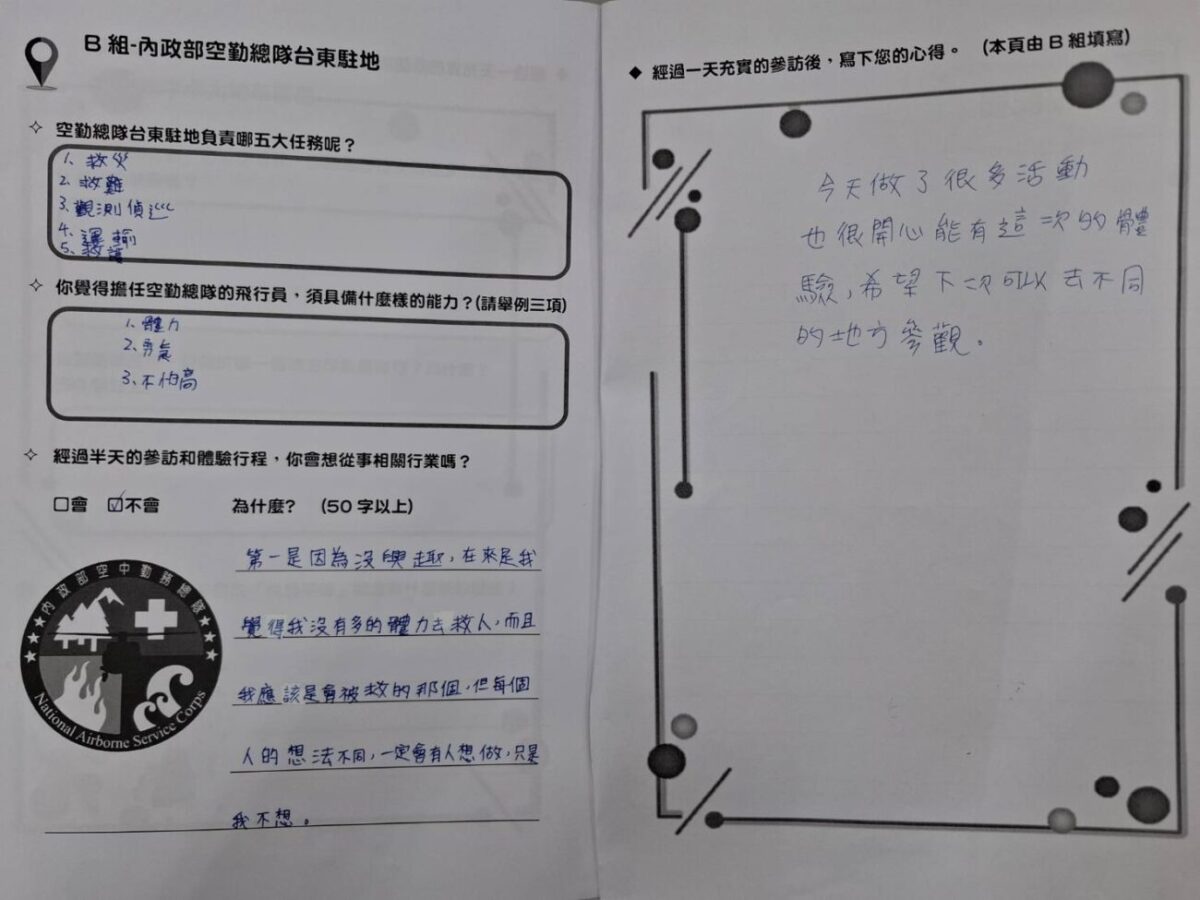 B 組-內政部空勤總隊台東駐地
空勤總隊台東駐地負責哪五大任務呢？
1. 救災
2. 救難
3. 觀測偵巡
4. 運輸
5. 救護
你覺得擔任空勤總隊的飛行員，須具備什麼樣的能力？(請舉例三項)
1. 體力
2. 勇氣
3. 不怕高
經過半天的參訪和體驗行程，你會想從事相關行業嗎？
□會 ☑不會 為什麼? (50 字以上)
第一是因為沒興趣，在來是我
覺得我沒有多的體力去救人，而且
我應該是會被救的那個，但每個
人的想法不同，一定會有人想做，只是
我不想。
內政部空中勤務總隊
National Airborne Service Corps
◆ 經過一天充實的參訪後，寫下您的心得。 (本頁由 B 組填寫)
今天做了很多活動
也很開心能有這一次的體
驗，希望下次可以去不同
的地方參觀。